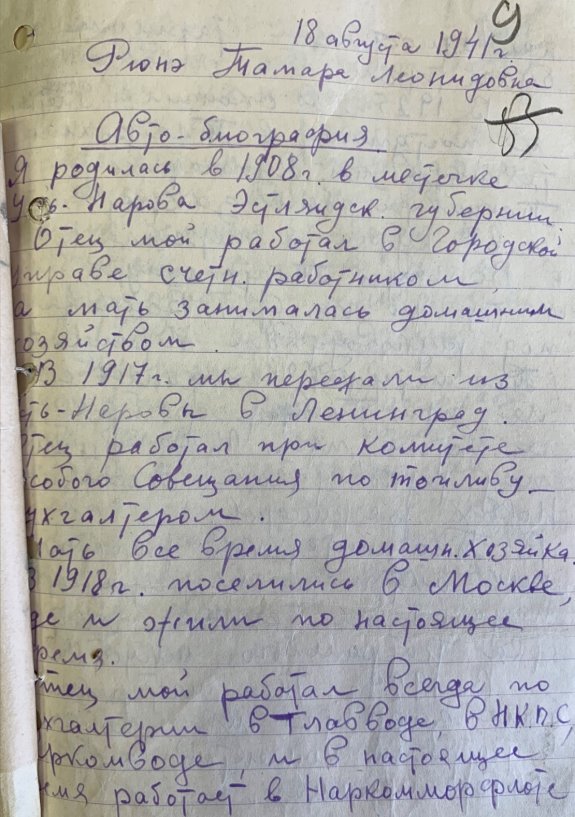 9
18 августа 1941г.
Рюнэ Тамара Леонидовна
Авто-биография
Я родилась в 1908г. в местечке
Усть-Нарова Эстляндск. губернии.
Отец мой работал в Городской
управе счетн. работником,
а мать занималась домашним
хозяйством.
В 1917г. мы переехали из
ть-Наровы в Ленинград.
тец работал при комитете
собого Совещания по топливу
ухгалтером.
Мать все время домашн. хозяйка.
В 1918г. поселились в Москве,
где и жили по настоящее
ремя.
тец мой работал всегда по
хгалтерии в Главводе, в НКПС,
ркомводе, и в настоящее
емя работает в Наркомморфлоте